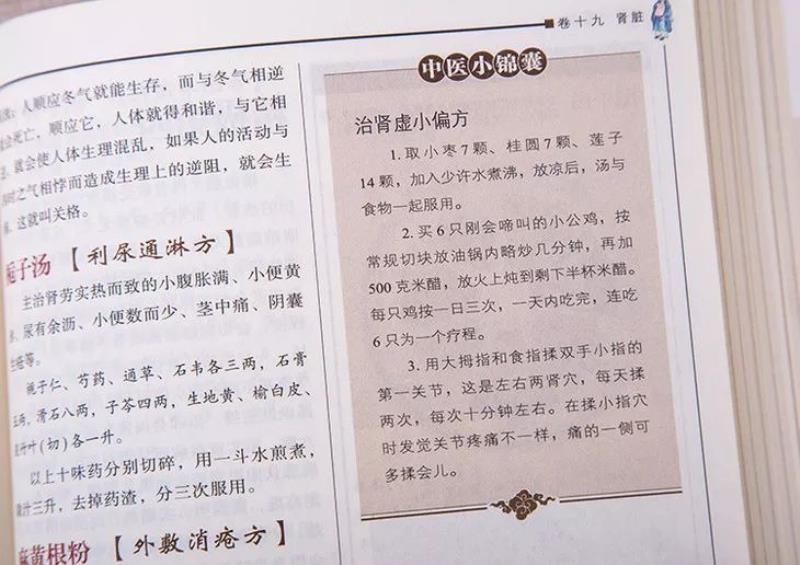 卷十九 肾脏
人顺应冬气就能生存，而与冬气相逆
会死亡，顺应它，人体就得和谐，与它相
就会使人体生理混乱，如果人的活动与
时之气相悖而造成生理上的逆阻，就会生
这就叫关格。
栀子汤 【利尿通淋方】
主治肾劳实热而致的小腹胀满、小便黄
尿有余沥、小便数而少、茎中痛、阴囊
生疮等。
栀子仁、芍药、通草、石韦各三两，石膏
五两，滑石八两，子芩四两，生地黄、榆白皮、
竹叶（切）各一升。
以上十味药分别切碎，用一斗水煎煮，
取汁三升，去掉药渣，分三次服用。
麻黄根粉 【外敷消疮方】
中医小锦囊
治肾虚小偏方
1. 取小枣7颗、桂圆7颗、莲子
14颗，加入少许水煮沸，放凉后，汤与
食物一起服用。
2. 买6只刚会啼叫的小公鸡，按
常规切块放油锅内略炒几分钟，再加
500克米醋，放火上炖到剩下半杯米醋。
每只鸡按一日三次，一天内吃完，连吃
6只为一个疗程。
3. 用大拇指和食指揉双手小指的
第一关节，这是左右两肾穴，每天揉
两次，每次十分钟左右。在揉小指穴
时发觉关节疼痛不一样，痛的一侧可
多揉会儿。